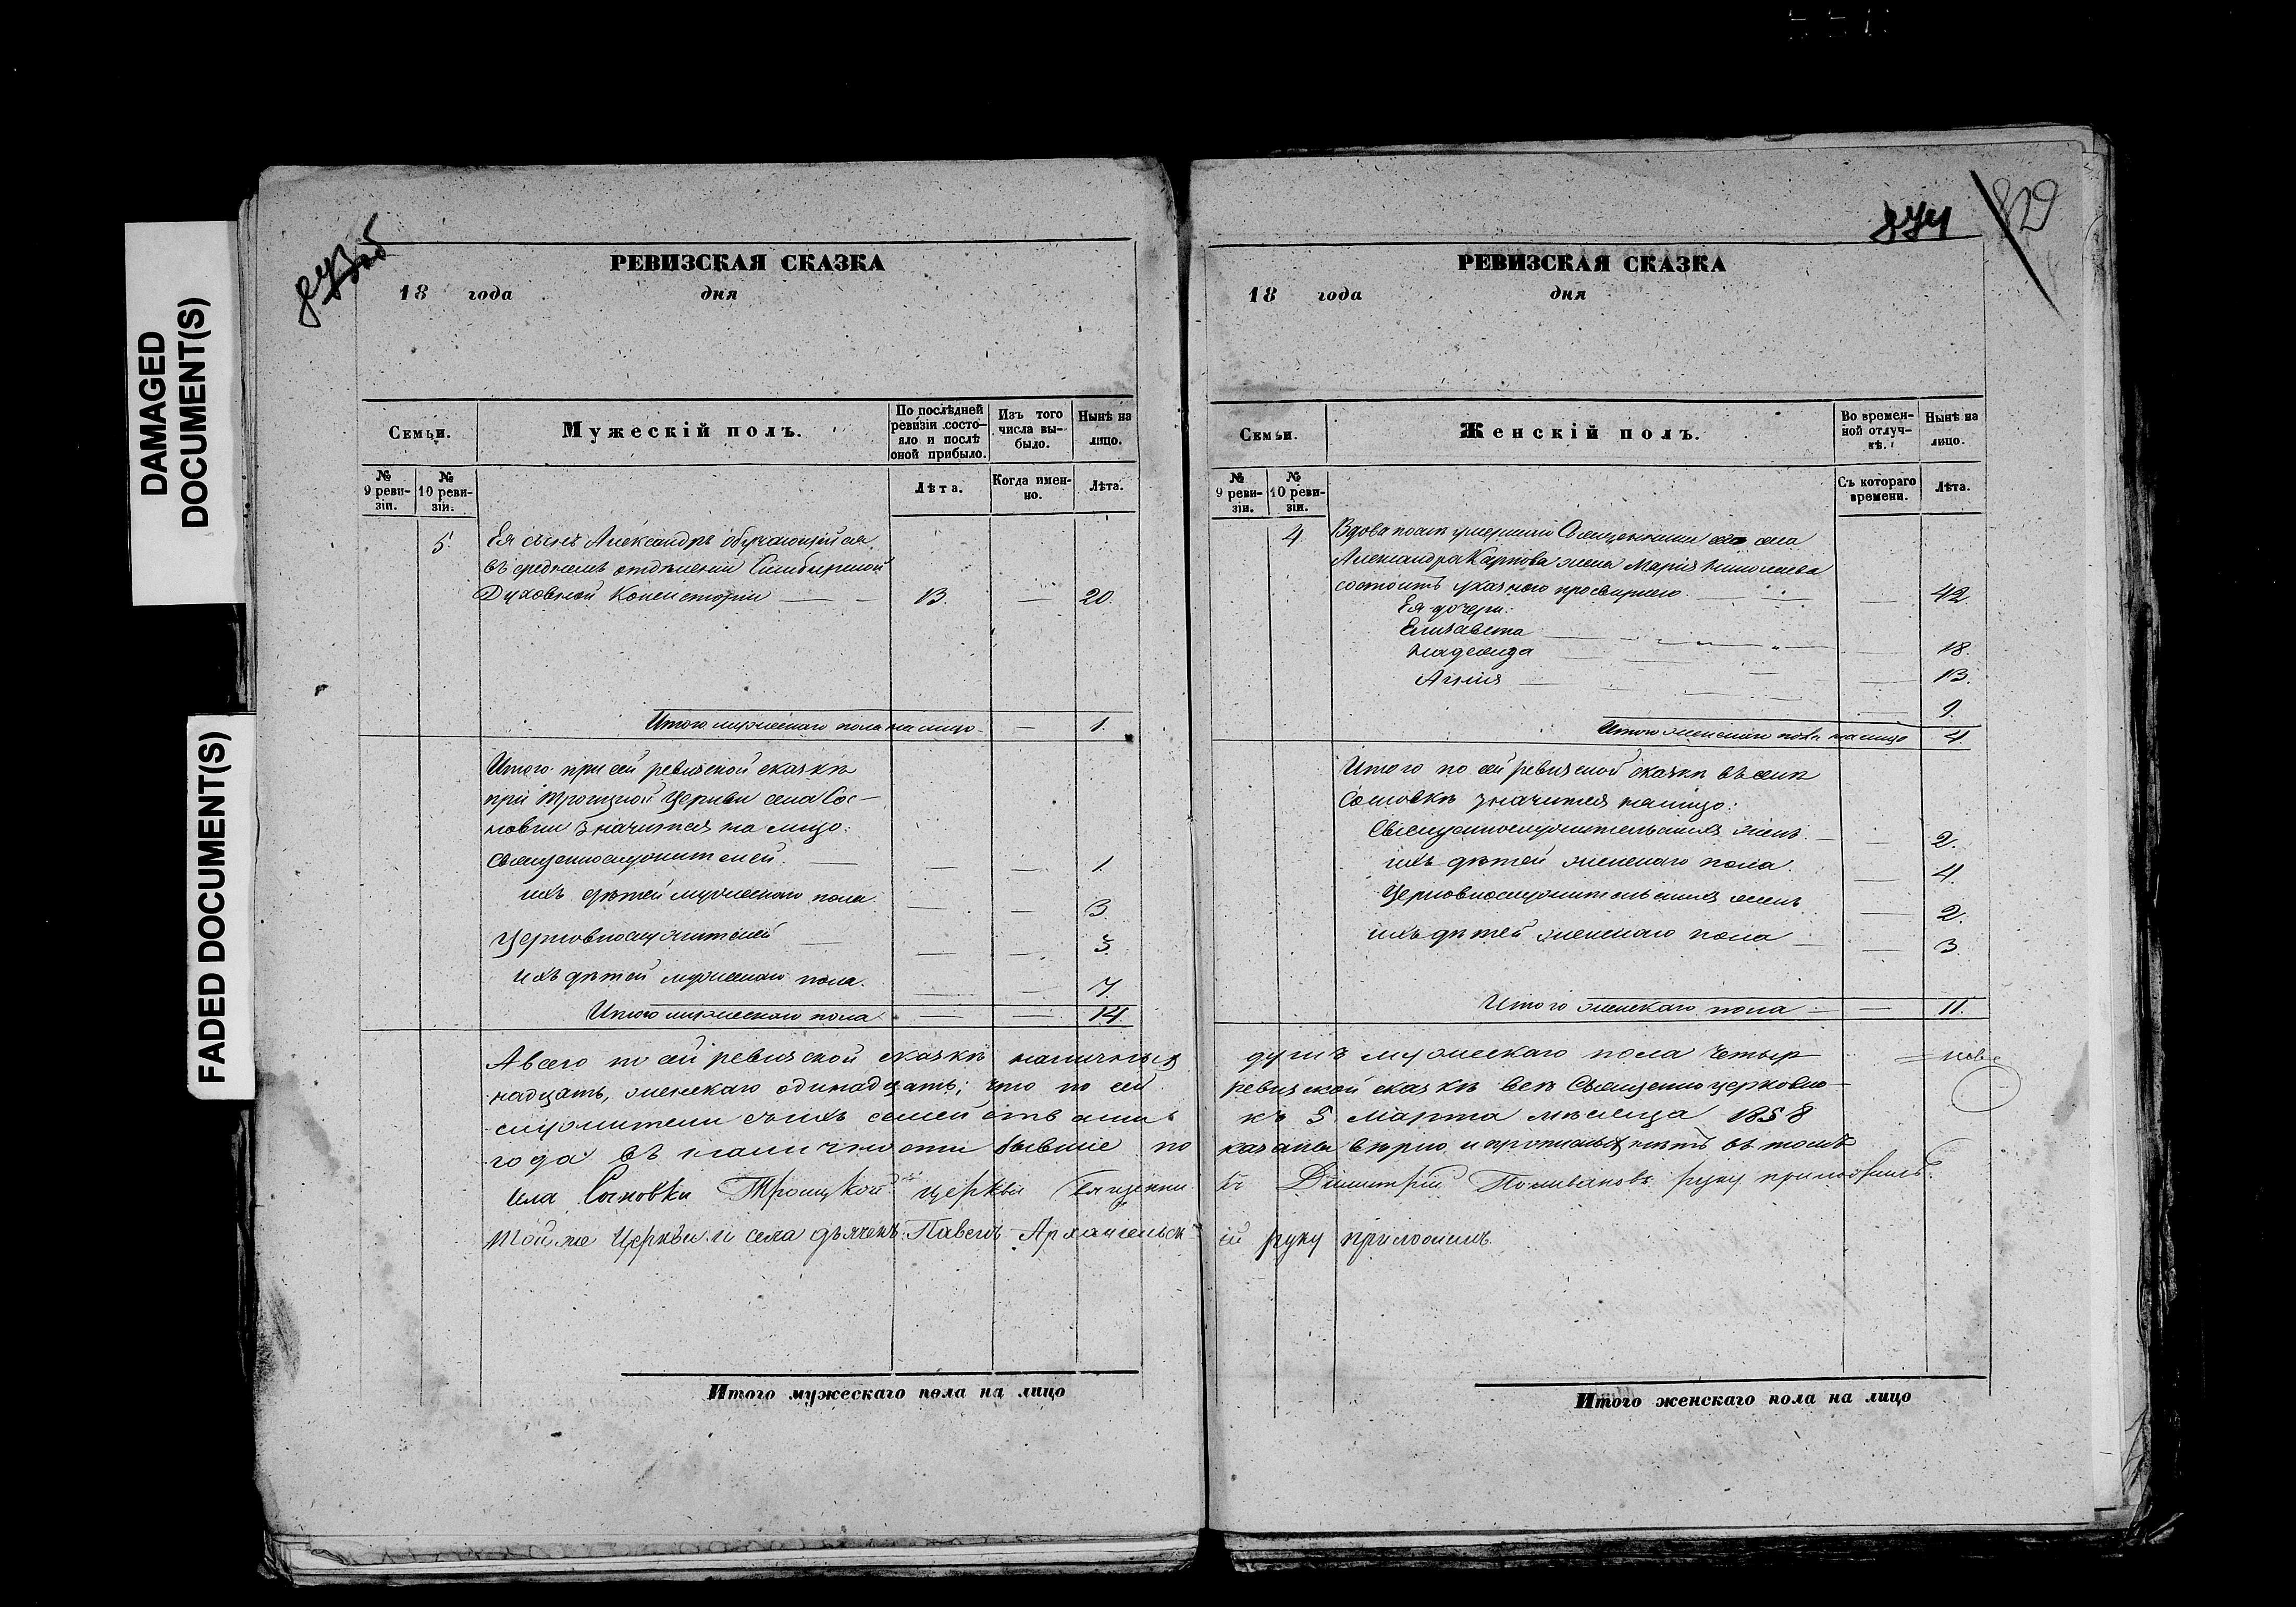 DAMAGED
DOCUMENT(S)
FADED DOCUMENT(S)
873об
РЕВИЗСКАЯ СКАЗКА
18 года дня
Семьи.
Мужескій полъ.
По послѣдней
ревизіи состо-
яло и послѣ
оной прибыло.
Изъ того
числа вы-
было.
Нынѣ на
лицо.
№
9 реви-
зіи.
№
10 реви-
зіи.
Лѣта.
Когда имен-
но.
Лѣта.
5. Ея сынъ Александръ обучающійся
въ среднемъ отдѣленіи Симбирской
Духовной Консисторіи — 13. — 20.
Итого мужескаго пола на лицо — 1.
Итого при сей ревизской сказкѣ
при Троицкой Церкви села Сос-
новки значится на лицо:
Священнослужителей — — — 1.
ихъ дѣтей мужескаго пола — — 3.
Церковнослужителей — — — 3.
ихъ дѣтей мужескаго пола. — — 7.
Итого мужескаго пола — — 14.
А всего по сей ревизской сказкѣ наличныхъ
надцать, женскаго одинадцать; что по сей
служители съ ихъ семействами
года въ наличности бывшіе по
села Сосновки Троицкой церкви Священни
Той же Церкви и села дьячекъ Павелъ Архангельск
Итого мужескаго пола на лицо
874
829
РЕВИЗСКАЯ СКАЗКА
18 года дня
Семьи.
Женскій полъ.
Во времен-
ной отлуч-
кѣ.
Нынѣ на
лицо.
№
9 реви-
зіи.
№
10 реви-
зіи.
Съ котораго
времени.
Лѣта.
4. Вдова послѣ умершаго Священника села
Александра Карпова жена Марія Николаева
состоитъ указною просвирнею — — 42.
Ея дочери:
Елизавета — — 18.
Надежда — — 13.
Агнія — — 9.
Итого женскаго пола на лицо 4.
Итого по сей ревизской сказкѣ въ селѣ
Сосновкѣ значится на лицо:
Священнослужительскихъ женъ — — 2.
ихъ дѣтей женскаго пола. — 4.
Церковнослужительскихъ женъ — 2.
ихъ дѣтей женскаго пола — — 3.
Итого женскаго пола — — 11.
душъ мужескаго пола четыр
ревизской сказкѣ всѣ Священноцерковно-
къ 3 Марта мѣсяца 1858
казаны вѣрно и прописныхъ нѣтъ въ томъ
къ Димитрій Поливановъ руку приложилъ.
ій руку приложилъ.
Итого женскаго пола на лицо